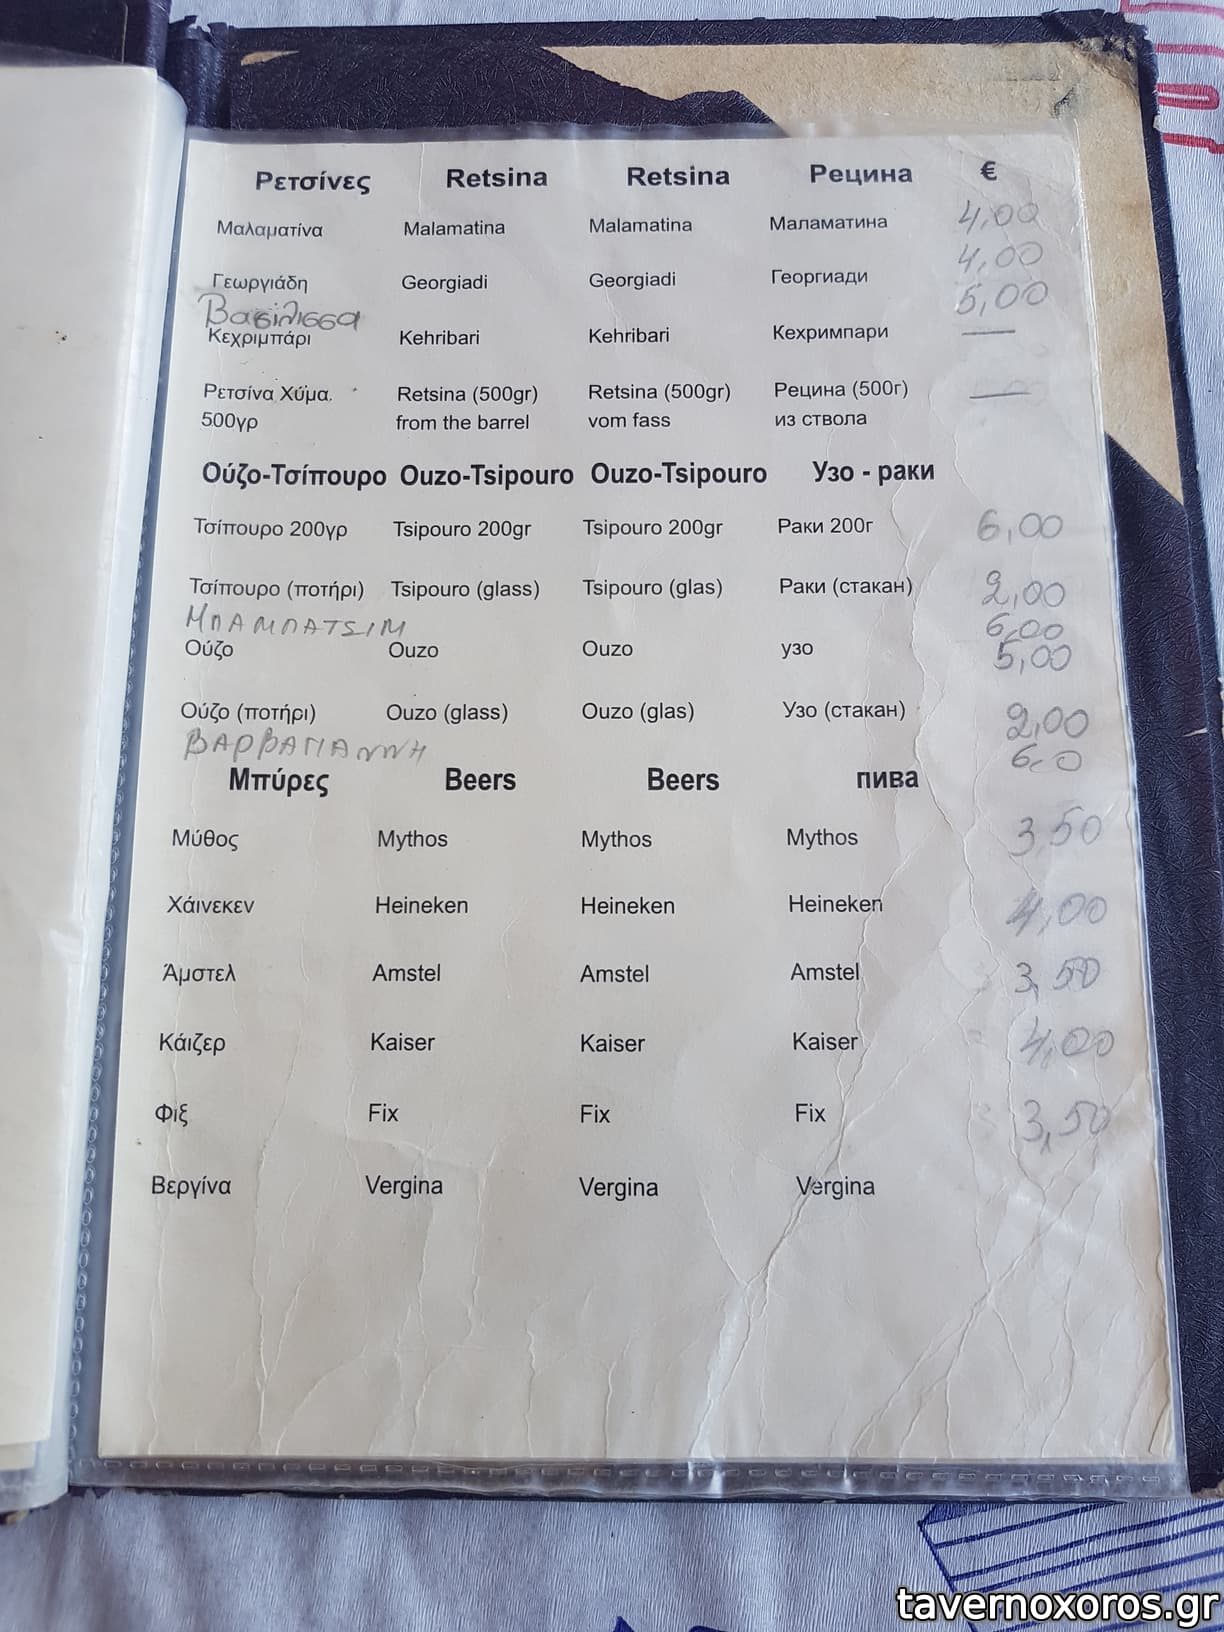 Ρετσίνες Retsina Retsina Рецина €
Μαλαματίνα Malamatina Malamatina Маламатина 4,00
Γεωργιάδη Georgiadi Georgiadi Георгиади 4,00
Βασίλισσα 5,00
Κεχριμπάρι Kehribari Kehribari Кехримпари —
Ρετσίνα Χύμα. Retsina (500gr) Retsina (500gr) Рецина (500г) —
500γρ from the barrel vom fass из ствола
Ούζο-Τσίπουρο Ouzo-Tsipouro Ouzo-Tsipouro Узо - раки
Τσίπουρο 200γρ Tsipouro 200gr Tsipouro 200gr Раки 200г 6,00
Τσίπουρο (ποτήρι) Tsipouro (glass) Tsipouro (glas) Раки (стакан) 2,00
ΜΠΑΜΠΑΤΣΙΜ 6,00
Ούζο Ouzo Ouzo узо 5,00
Ούζο (ποτήρι) Ouzo (glass) Ouzo (glas) Узо (стакан) 2,00
ΒΑΡΒΑΓΙΑΝΝΗ
Μπύρες Beers Beers пива
Μύθος Mythos Mythos Mythos 3,50
Χάινεκεν Heineken Heineken Heineken 4,00
Άμστελ Amstel Amstel Amstel 3,50
Κάιζερ Kaiser Kaiser Kaiser 4,00
Φιξ Fix Fix Fix 3,50
Βεργίνα Vergina Vergina Vergina
tavernoxoros.gr